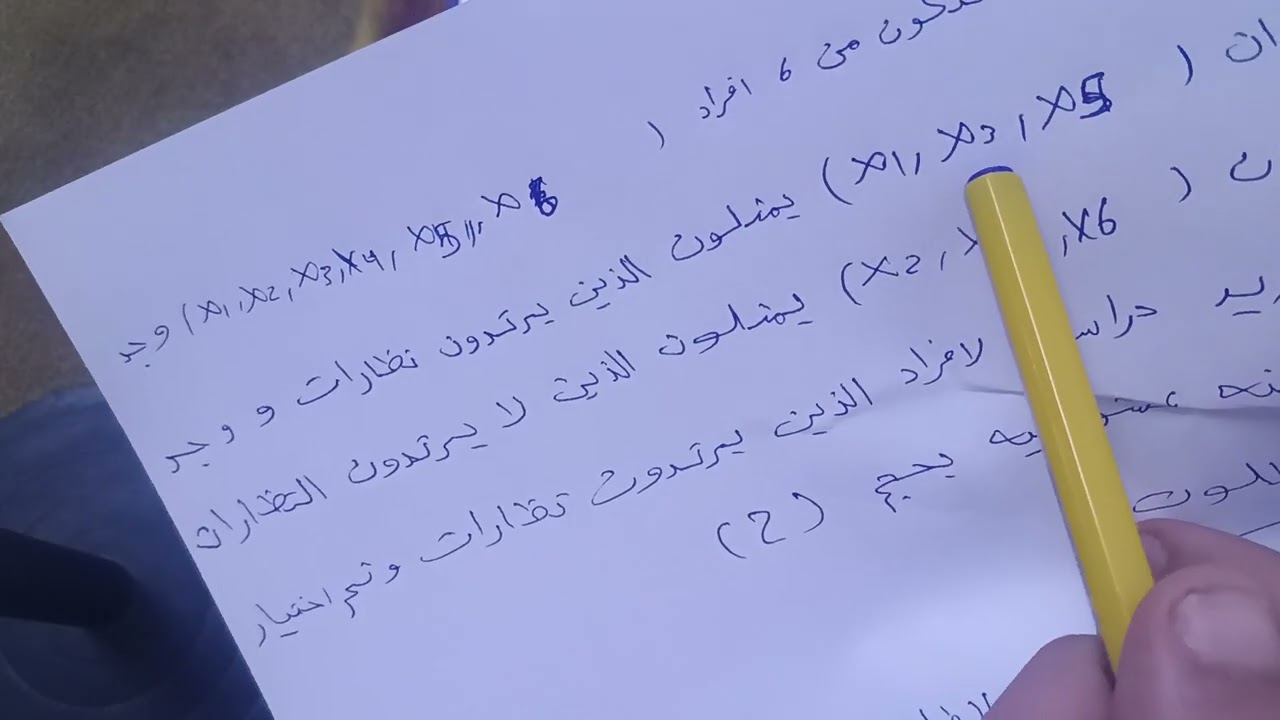 من 6 افراد (
(x1,x2,x3,x4,x5,,x6) وجد
ان (x1,x3,x5) يمثلون الذين يرتدون نظارات و وجد
(x2, x6) يمثلون الذين لا يرتدون النظارات
دراسه لافراد الذين يرتدون نظارات وتم اختيار
بحجم (2)